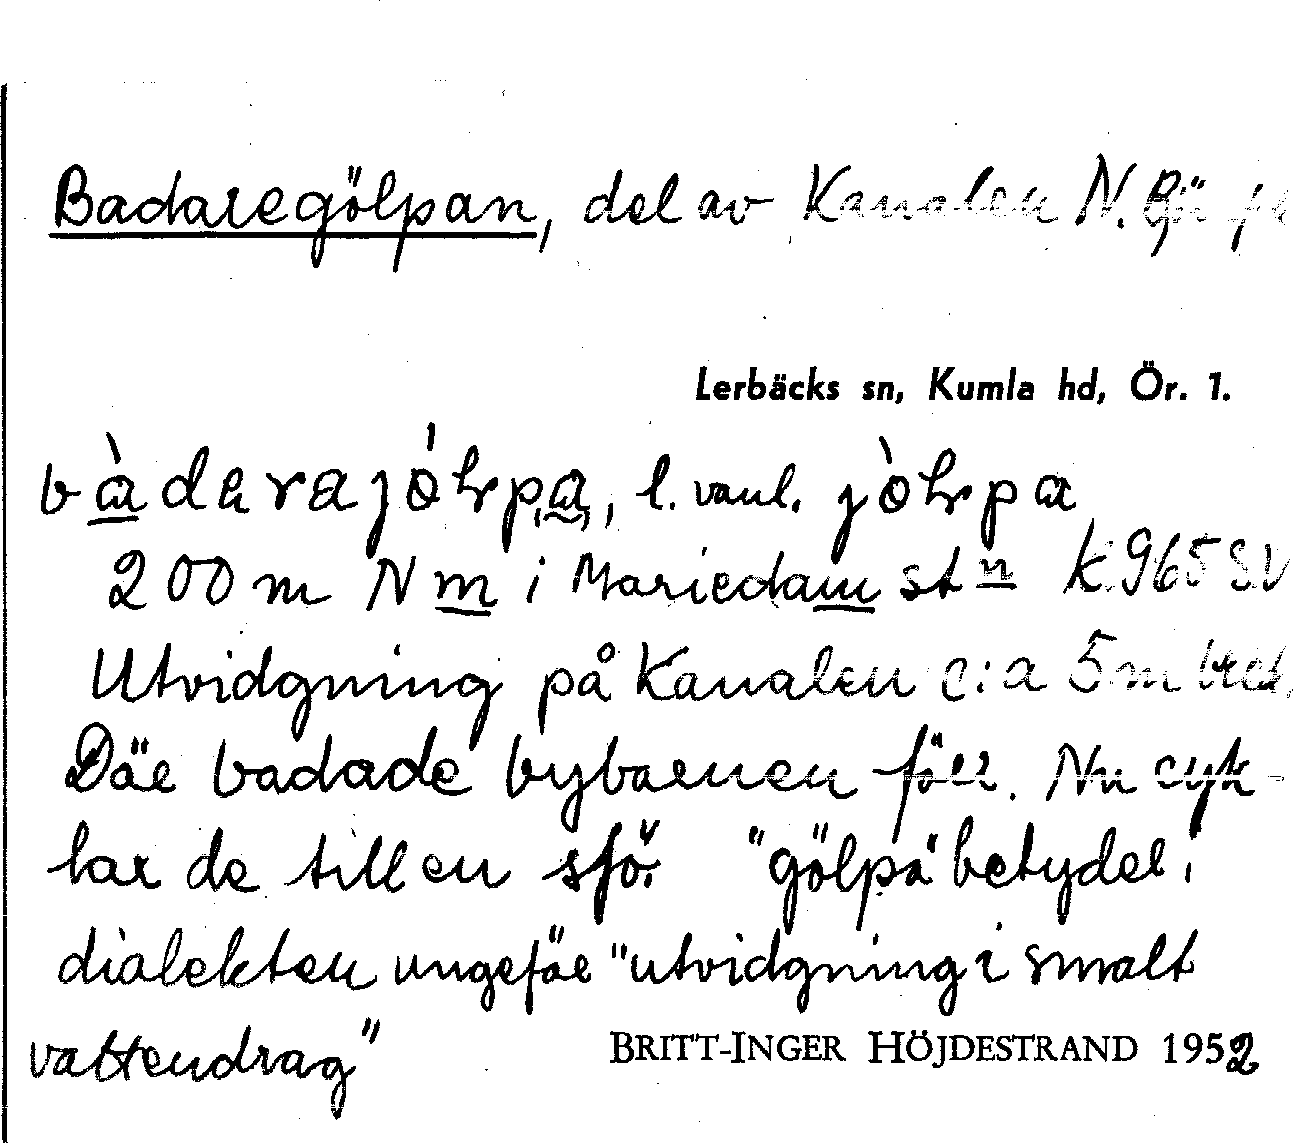 Badaregölpan, del av Kanalen N.
Lerbäcks sn, Kumla hd, Ör. 1.
l. vanl.
200 m N m i Mariedam st n K 965 SV
Utvidgning på Kanalen c:a 5 m bred.
Där badade bybarnen förr. Nu cyk-
lar de till en sjö. "gölpa" betyder i
dialekten ungefär "utvidgning i smalt
vattendrag"
BRITT-INGER HÖJDESTRAND 1952